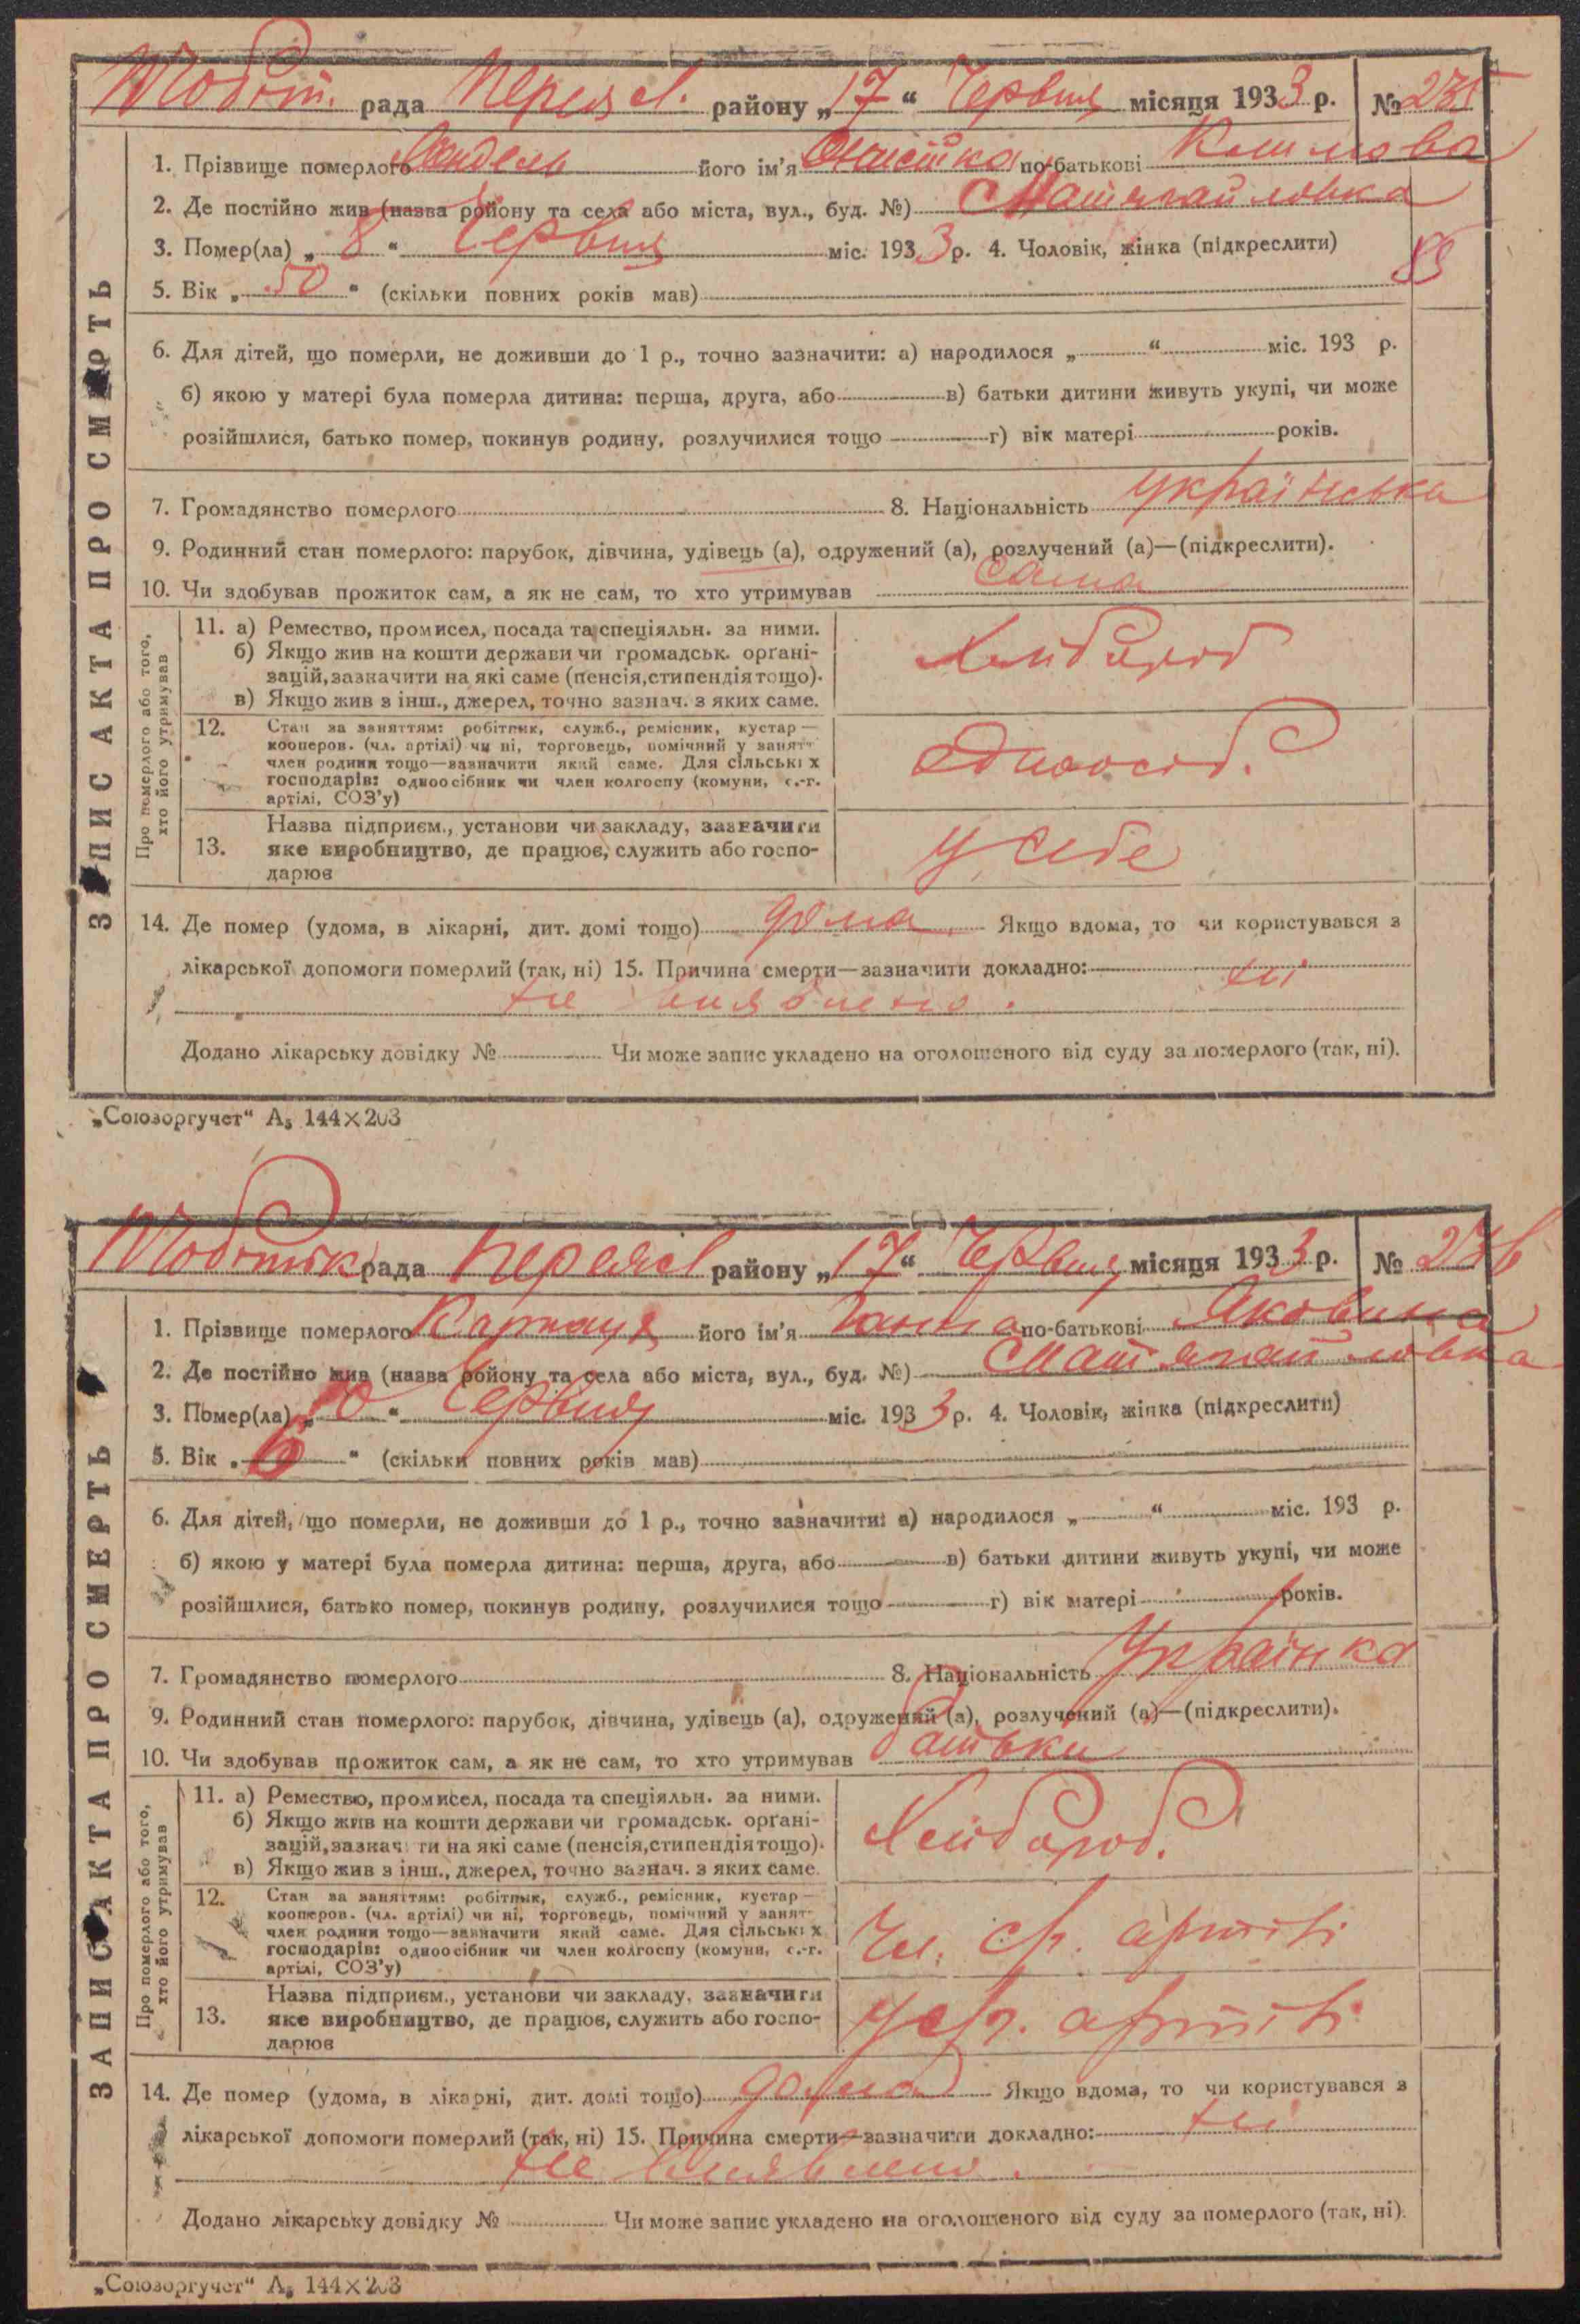 рада Переясл. району „17“ Червня місяця 1933 р. № 235
1. Прізвище померлого його ім'я по-батькові
2. Де постійно жив (назва ройону та села або міста, вул., буд. №)
3. Помер(ла) „8“ Червня міс. 1933 р. 4. Чоловік, жінка (підкреслити)
85
5. Вік „50“ (скільки повних років мав)
6. Для дітей, що померли, не доживши до 1 р., точно зазначити: а) народилося „ “ міс. 193 р.
б) якою у матері була померла дитина: перша, друга, або в) батьки дитини живуть укупі, чи може
розійшлися, батько помер, покинув родину, розлучилися тощо г) вік матері років.
7. Громадянство померлого 8. Національність українська
9. Родинний стан померлого: парубок, дівчина, удівець (а), одружений (а), розлучений (а)—(підкреслити).
10. Чи здобував прожиток сам, а як не сам, то хто утримував сама
ЗАПИС АКТА ПРО СМЕРТЬ
Про померлого або того,
хто його утримував
11. а) Ремество, промисел, посада та спеціяльн. за ними.
б) Якщо жив на кошти держави чи громадськ. орґані-
зацій, зазначити на які саме (пенсія, стипендія тощо).
в) Якщо жив з інш., джерел, точно зазнач. з яких саме.
Хлібороб
12. Стан за заняттям: робітник, служб., ремісник, кустар —
кооперов. (чл. артілі) чи ні, торговець, помічний у занятт
член родини тощо—зазначити який саме. Для сільських
господарів: одноосібник чи член колгоспу (комуни, с.-г.
артілі, СОЗ'у)
Одноосіб.
13. Назва підприєм., установи чи закладу, зазначити
яке виробництво, де працює, служить або госпо-
дарює
у себе
14. Де помер (удома, в лікарні, дит. домі тощо) дома Якщо вдома, то чи користувався з
лікарської допомоги померлий (так, ні) 15. Причина смерти—зазначити докладно: ні
не виявлено.
Додано лікарську довідку № Чи може запис укладено на оголошеного від суду за померлого (так, ні).
„Союзоргучет“ А₅ 144×203
рада Переясл району „17“ Червня місяця 1933 р. № 236
1. Прізвище померлого його ім'я Ганна по-батькові Яковина
2. Де постійно жив (назва ройону та села або міста, вул., буд. №)
3. Помер(ла) „10“ Червня міс. 1933 р. 4. Чоловік, жінка (підкреслити)
5. Вік „6“ (скільки повних років мав)
6. Для дітей, що померли, не доживши до 1 р., точно зазначити: а) народилося „ “ міс. 193 р.
б) якою у матері була померла дитина: перша, друга, або в) батьки дитини живуть укупі, чи може
розійшлися, батько помер, покинув родину, розлучилися тощо г) вік матері років.
7. Громадянство померлого 8. Національність Українка
9. Родинний стан померлого: парубок, дівчина, удівець (а), одружений (а), розлучений (а)—(підкреслити).
10. Чи здобував прожиток сам, а як не сам, то хто утримував батьки
ЗАПИС АКТА ПРО СМЕРТЬ
Про померлого або того,
хто його утримував
11. а) Ремество, промисел, посада та спеціяльн. за ними.
б) Якщо жив на кошти держави чи громадськ. орґані-
зацій, зазначити на які саме (пенсія, стипендія тощо).
в) Якщо жив з інш., джерел, точно зазнач. з яких саме.
Хлібороб.
12. Стан за заняттям: робітник, служб., ремісник, кустар —
кооперов. (чл. артілі) чи ні, торговець, помічний у занят-
член родини тощо—зазначити який саме. Для сільських
господарів: одноосібник чи член колгоспу (комуни, с.-г.
артілі, СОЗ'у)
Чл. с/г. артілі
13. Назва підприєм., установи чи закладу, зазначити
яке виробництво, де працює, служить або госпо-
дарює
у с/г. артілі
14. Де помер (удома, в лікарні, дит. домі тощо) дома Якщо вдома, то чи користувався з
лікарської допомоги померлий (так, ні) 15. Причина смерти—зазначити докладно: ні
не виявлено.
Додано лікарську довідку № Чи може запис укладено на оголошеного від суду за померлого (так, ні).
„Союзоргучет“ А₅ 144×203